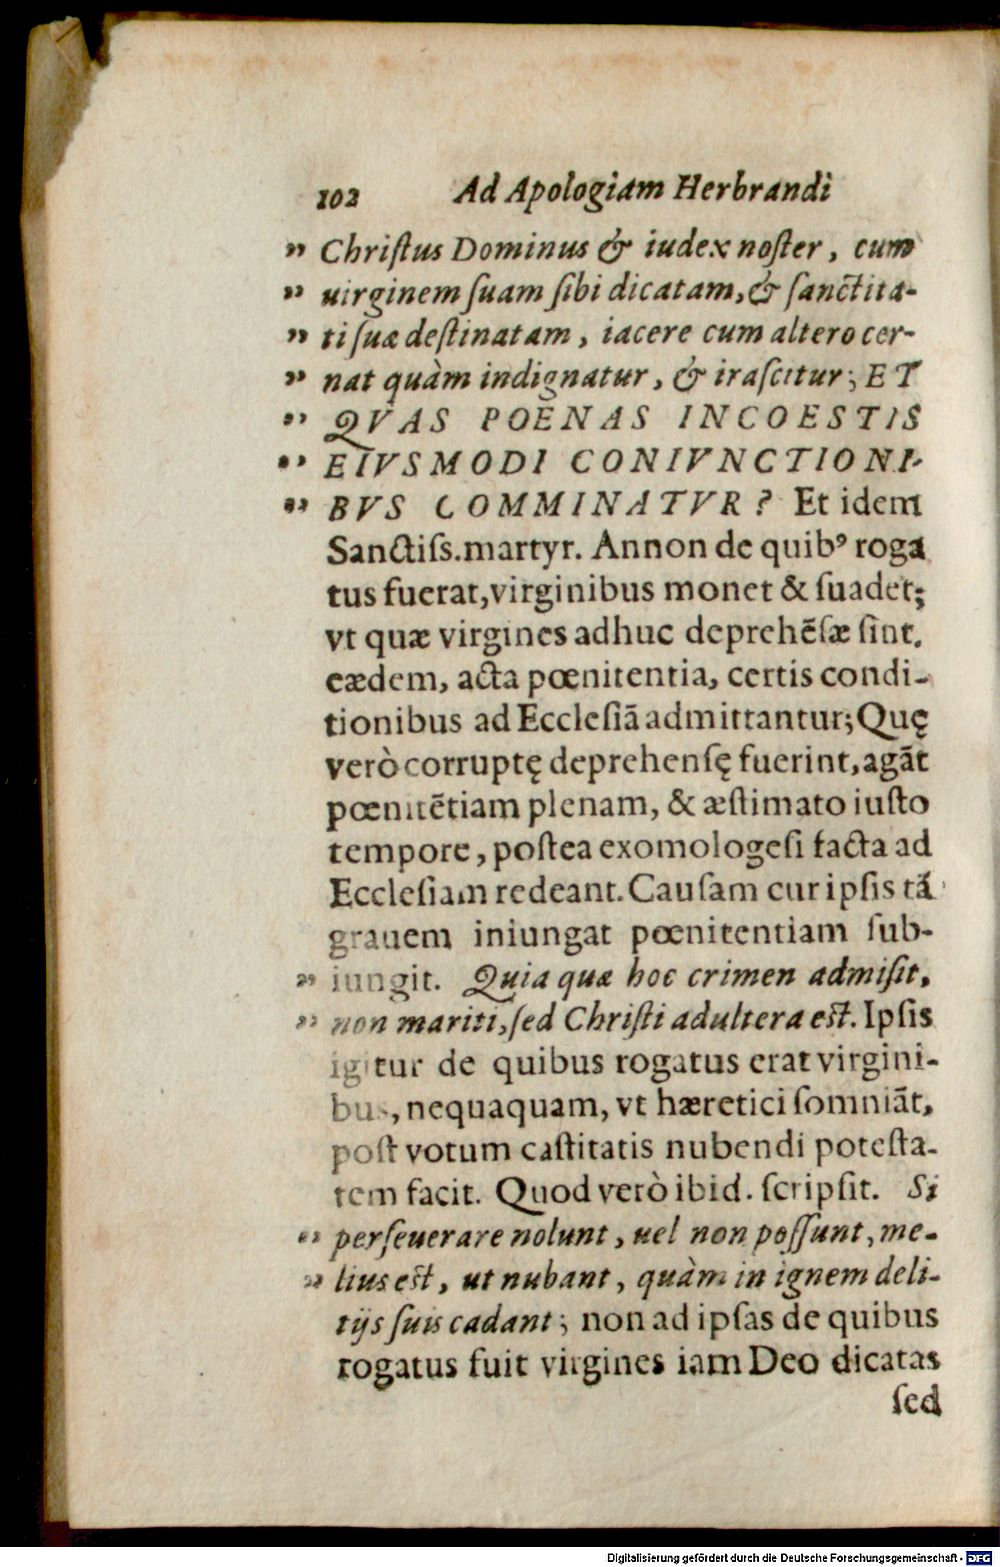 102 Ad Apologiam Herbrandi
„ Chriſtus Dominus & iudex noſter, cum
„ uirginem ſuam ſibi dicatam, & ſanctita-
„ ti ſuæ deſtinatam, iacere cum altero cer-
„ nat quàm indignatur, & iraſcitur; ET
„ QVAS POENAS INCOESTIS
„ EIVSMODI CONIVNCTIONI-
„ BVS COMMINATVR? Et idem
Sanctiſs. martyr. Annon de quibꝰ roga
tus fuerat, virginibus monet & ſuadet;
vt quæ virgines adhuc deprehẽſæ ſint,
eædem, acta pœnitentia, certis condi-
tionibus ad Eccleſiã admittantur; Quę
verò corruptę deprehenſę fuerint, agãt
pœnitẽtiam plenam, & æſtimato iuſto
tempore, poſtea exomologeſi facta ad
Eccleſiam redeant. Cauſam cur ipſis tã
grauem iniungat pœnitentiam ſub-
„ iungit. Quia quæ hoc crimen admiſit,
„ non mariti, ſed Chriſti adultera eſt. Ipſis
igitur de quibus rogatus erat virgini-
bus, nequaquam, vt hæretici ſomniãt,
poſt votum caſtitatis nubendi poteſta-
tem facit. Quod verò ibid. ſcripſit. Si
„ perſeuerare nolunt, uel non poſſunt, me-
„ lius eſt, ut nubant, quàm in ignem deli-
tijs ſuis cadant; non ad ipſas de quibus
rogatus fuit virgines iam Deo dicatas
ſed
Digitalisierung gefördert durch die Deutsche Forschungsgemeinschaft - DFG